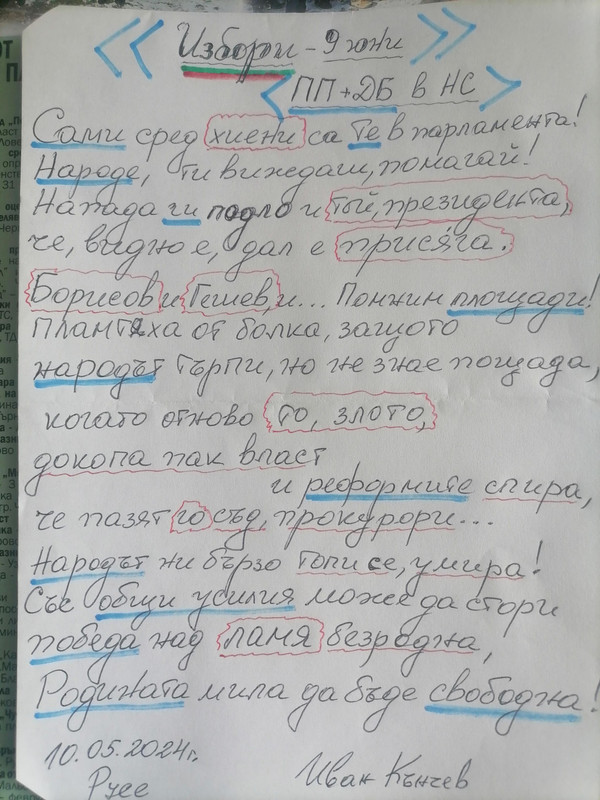 Избори - 9 юни
ПП+ДБ в НС
Сами сред хиени са те в парламента!
Народе, ти виждаш, помагай!
Напада ги подло и той, президента,
че, видно е, дал е присяга.
Борисов и Гешев, и... Понжин площади!
Плантяха от болка, защото
народът търпи, но не знае пощада,
когато отново то, злото,
докопа пак власт
и реформите спира,
че пазят го съд, прокурори...
Народът ни бързо топи се, умира!
Със общи усилия може да стори
победа над ламя безродна,
Родината мила да бъде свободна!
10.05.2024г.
Русе
Иван Кънчев